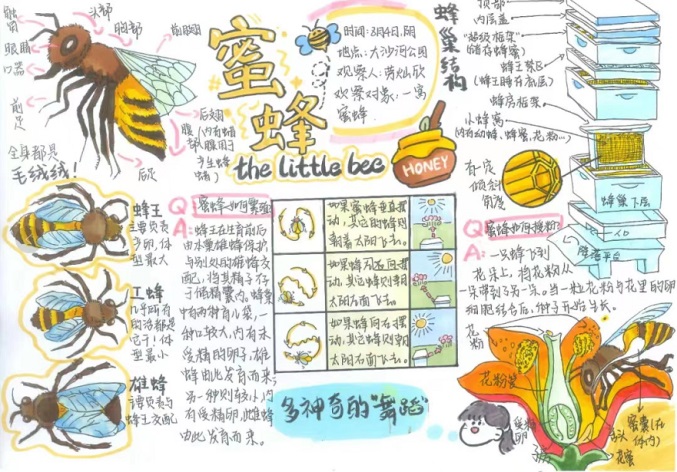 头部
胸部
触角
眼睛
口器
前足
后足
后翅
全身都是
毛绒绒!
蜜蜂
the little bee
时间:3月4日,阴
地点:大沙河公园
观察人:黄灿欣
观察对象:一窝
蜜蜂
HONEY
蜂巢结构
顶部
内层盖
"超级框架"
(储存蜂蜜)
蜂王
蜂房框架
小蜂窝
(内有幼蜂、蜂蜜、花粉…)
有一定
倾斜
角度
蜂巢下层
入口
降落平台
蜂王
主要负责
产卵,体
型最大
工蜂
几乎所有
的活都是
它干!体
型最小
雄蜂
主要负责与
蜂王交配
Q 蜜蜂如何繁殖
A:蜂王在生育前后
由水熏雄蜂保护
与别处的雄蜂交
配,将其精子存
于储精囊内。蜂巢
中有两种育儿袋,一
种比较大,内有未
受精的卵子,雄
蜂由此发育而来;
另一种则较小,内
有受精卵,雌蜂
由此发育而来。
如果蜜蜂垂直摆
动,其它蜂则朝
着太阳飞去。
如果蜂向左摆
动,其它蜂则朝
太阳左面飞去。
如果蜂向右摆
动,其它蜂则朝
太阳右面飞去。
多神奇的"舞蹈"
Q 蜜蜂如何授粉
A:一只蜂飞到
花朵上,将花粉从
一朵带到另一朵。当一粒花粉与花里的卵
细胞结合后,种子开始生长。
花粉
花粉囊
卵
舌头
蜜囊(在
体内)
花蜜